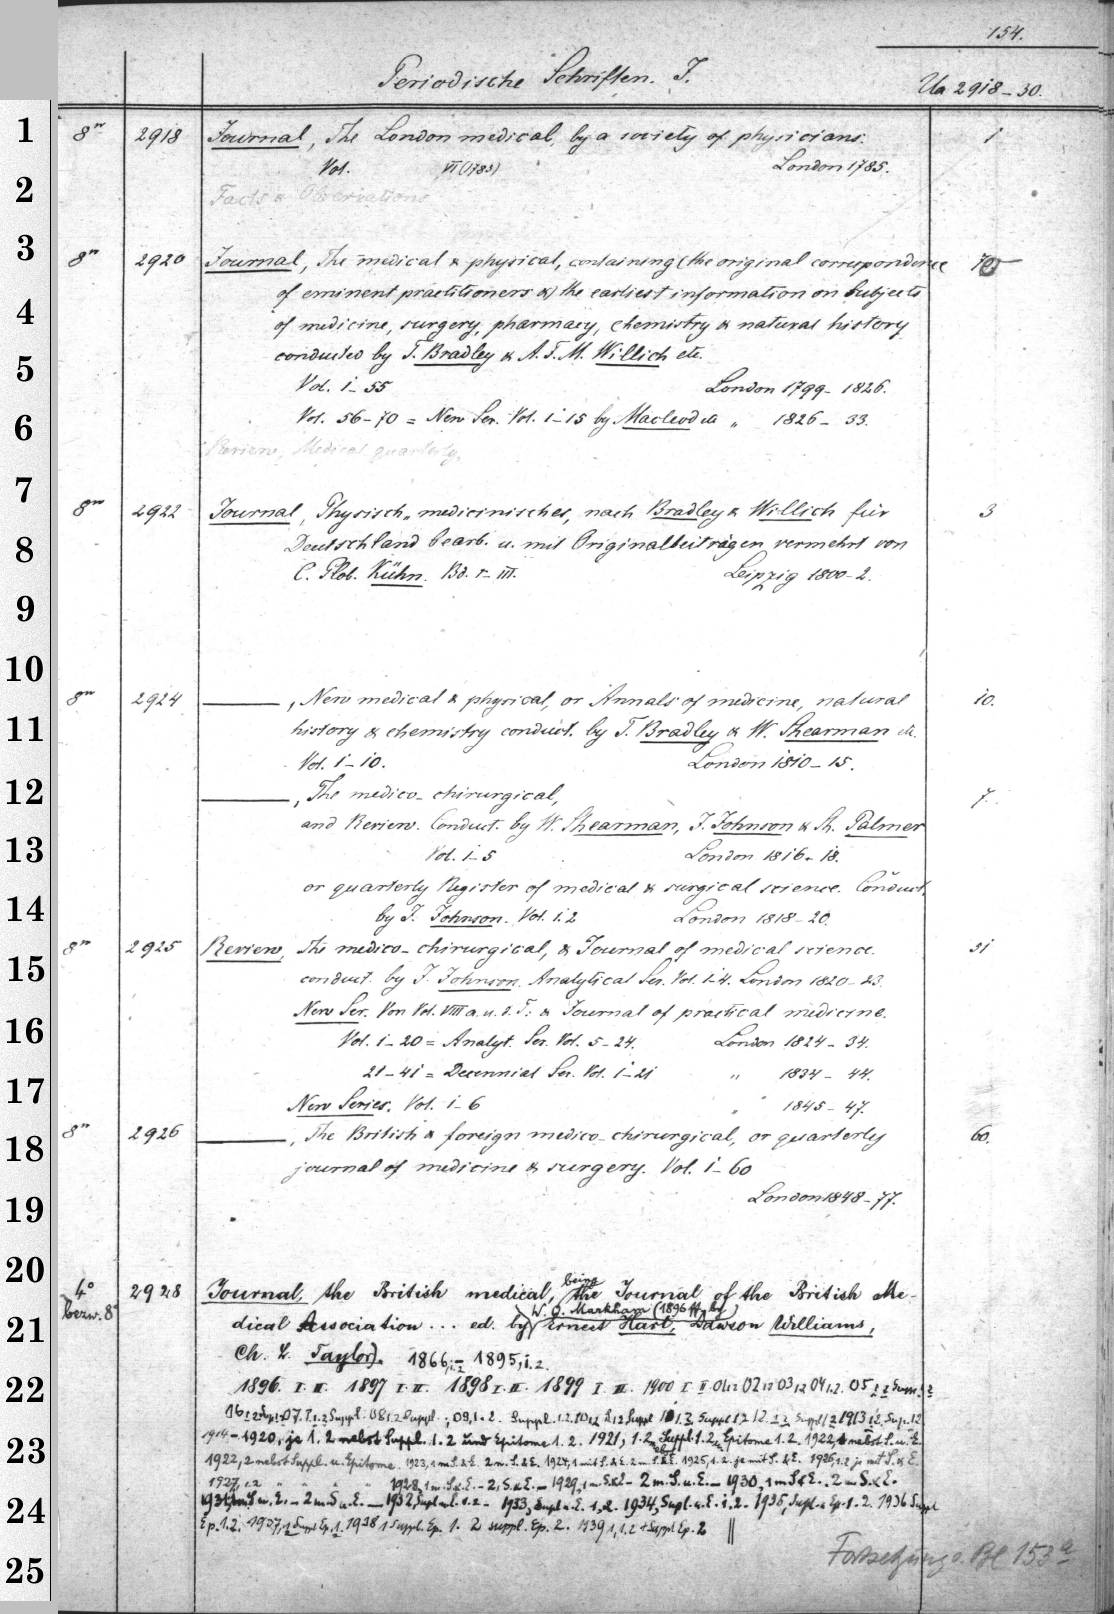 154.
Periodische Schriften. J.
Ua 2918-30.
8° 2918 Journal, The London medical, by a society of physicians. 1
Vol. VI (1785) London 1785.
Facts & Observations
8° 2920 Journal, The medical & physical, containing (the original correspondence 70
of eminent practitioners &) the earliest information on subjects
of medicine, surgery, pharmacy, chemistry & natural history
conducted by T. Bradley & A. F. M. Willich etc.
Vol. 1-55 London 1799-1826.
Vol. 56-70 = New Ser. Vol. 1-15 by Macleod etc „ 1826-33.
Review, Medical quarterly.
8° 2922 Journal, Physisch-medicinisches, nach Bradley & Willich für 3
Deutschland bearb. u. mit Originalbeiträgen vermehrt von
C. Glob. Kühn. Bd. I-III. Leipzig 1800-2.
8° 2924 ———, New medical & physical, or Annals of medicine, natural 10.
history & chemistry conduct. by T. Bradley & W. Shearman etc.
Vol. 1-10. London 1810-15.
———, The medico-chirurgical, 7.
and Review. Conduct. by W. Shearman, J. Johnson & Sh. Palmer
Vol. 1-5 London 1816-18.
or quarterly Register of medical & surgical science. Conduct.
by J. Johnson. Vol. 1.2 London 1818-20.
8° 2925 Review, The medico-chirurgical, & Journal of medical science. 51
conduct. by J. Johnson. Analytical Ser. Vol. 1-4. London 1820-23.
New Ser. Von Vol. VIII a. u. d. T.: & Journal of practical medicine.
Vol. 1-20 = Analyt. Ser. Vol. 5-24. London 1824-34.
21-41 = Decennial Ser. Vol. 1-21 „ 1834-44.
New Series. Vol. 1-6 „ 1845-47.
8° 2926 ———, The British & foreign medico-chirurgical, or quarterly 60.
journal of medicine & surgery. Vol. 1-60
London 1848-77.
4° 2928 Journal, the British medical, being the Journal of the British Me-
bezw. 8°
dical Association ... ed. by W. O. Markham (1896 ff. by) Ernest Hart, Dawson Williams,
Ch. L. Taylor). 1866,1.2 - 1895,1.2.
1896 I. II. 1897 I. II. 1898 I. II. 1899 I. II. 1900 I. II 01 1.2 02 1.2 03 1.2 04 1.2. 05 1.2 Suppl. 1.2
1914-1920, je 1. 2 nebst Suppl. 1. 2 und Epitome 1. 2. 1921, 1. 2 Suppl. 1. 2 u. Epitome 1. 2. 1922, 1 nebst S. u. E.
1922, 2 nebst Suppl. u. Epitome. 1923, 1 m. S. & E. 2 m. S. & E. 1924, 1 mit S. & E. 2 m. S. & E. 1925, 1. 2. je mit S. & E. 1926, 1.2 je mit S. & E.
1927, 1.2 1928, 1 m. S. & E. - 2. S. & E. - 1929, 1 m. S. & E - 2 m. S. u. E. - 1930, 1 m S & E. . 2 m S. & E.
1931, 1 m S u. E. - 2 m S u. E. - 1932, Suppl. u. E. 1.2. - 1933, Suppl. u. E. 1. 2. 1934, Suppl. u. E. 1. 2. - 1935, Suppl. u. Ep. 1. 2. 1936 Suppl
Ep. 1. 2. 1937, 1.2 Suppl Ep. 1. 1938 1 Suppl. Ep. 1. 2 Suppl. Ep. 2. 1939 1, 1.2 + Suppl Ep. 2 ||
Fortsetzung s. Bl. 153a
1
2
3
4
5
6
7
8
9
10
11
12
13
14
15
16
17
18
19
20
21
22
23
24
25